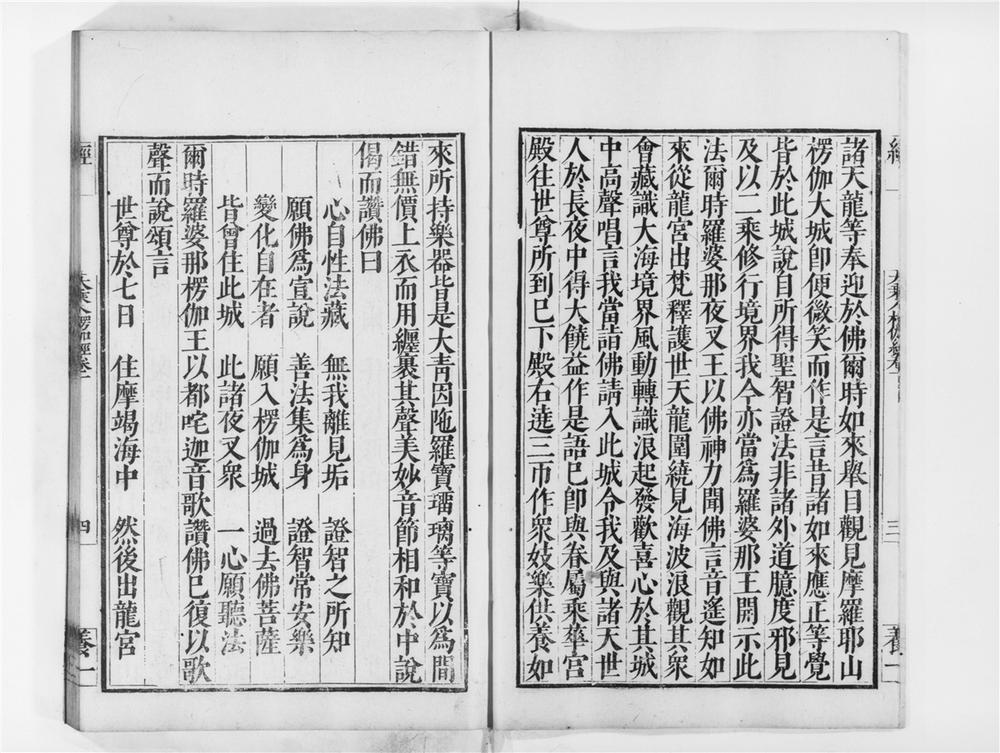 諸天龍等奉迎於佛爾時如來舉目觀見摩羅耶山
楞伽大城卽便微笑而作是言昔諸如來應正等覺
皆於此城說自所得聖智證法非諸外道臆度邪見
及以二乘修行境界我今亦當爲羅婆那王開示此
法爾時羅婆那夜叉王以佛神力聞佛言音遙知如
來從龍宮出梵釋護世天龍圍繞見海波浪觀其衆
會藏識大海境界風動轉識浪起發歡喜心於其城
中高聲唱言我當詣佛請入此城令我及與諸天世
人於長夜中得大饒益作是語已卽與眷屬乘華宮
殿往世尊所到已下殿右遶三帀作衆妓樂供養如
三
養一
來所持樂器皆是大青因陁羅寶瑠璃等寶以爲間
錯無價上衣而用纏裹其聲美妙音節相和於中說
偈而讚佛曰
心自性法藏　無我離見垢　證智之所知
願佛爲宣說　善法集爲身　證智常安樂
變化自在者　願入楞伽城　過去佛菩薩
皆曾住此城　此諸夜叉衆　一心願聽法
爾時羅婆那楞伽王以都咤迦音歌讚佛已復以歌
聲而說頌言
世尊於七日　住摩竭海中　然後出龍宮
經
大乘入楞伽經卷一
四
養一